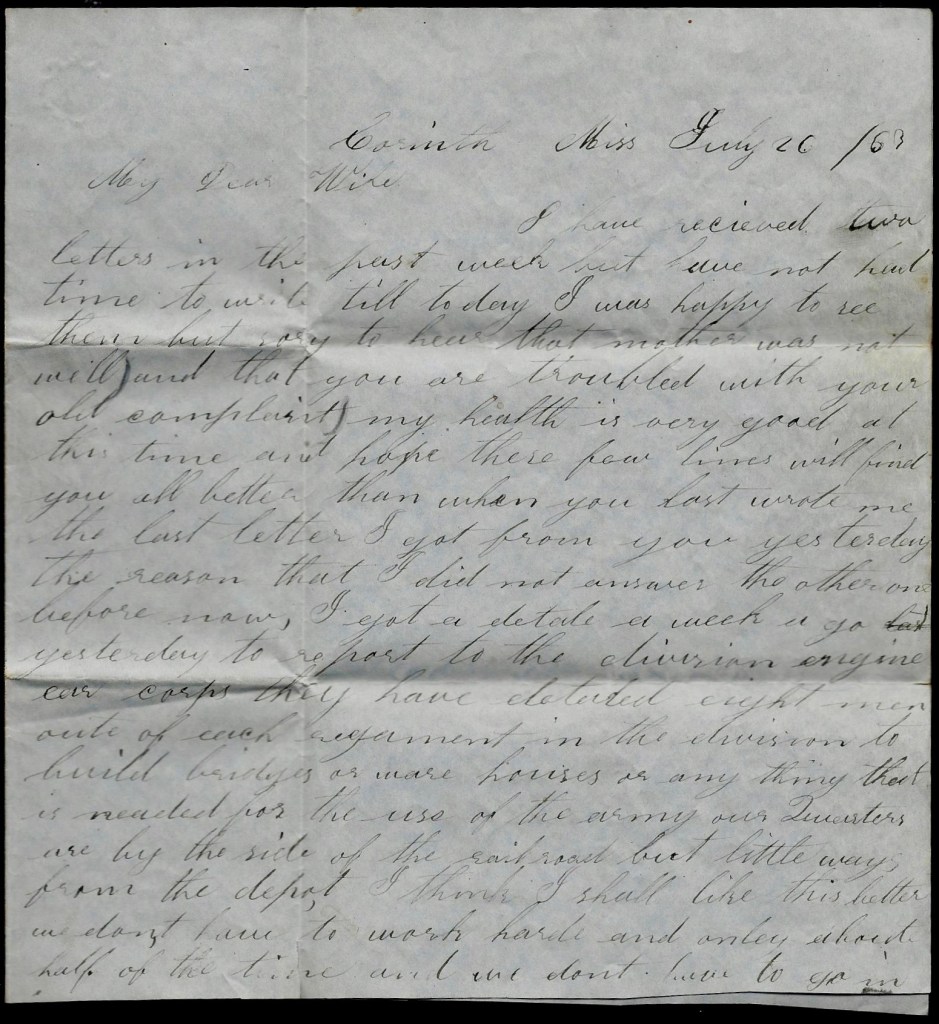 Corinth Miss July 26 /63
My Dear Wife
I have recieved two
letters in the past week but have not had
time to write till today I was happy to see
them but sory to hear that mother was not
will) and that you are troubled with your
old complaint) my health is very good at
this time and hope these few lines will find
you all better than when you last wrote me
the last letter I got from you yesterday
the reason that I did not answer the other one
before now, I got a detale a week a go
yesterday to report to the division engine
ear corps they have detaled eight men
oute of each regament in the division to
build bridges or ware houses or any thing that
is neaded for the use of the army our Quarters
are by the side of the railroad but little way
from the depot, I think I shall like this better
we dont have to work harde and onley about
half of the time and we dont have to go in